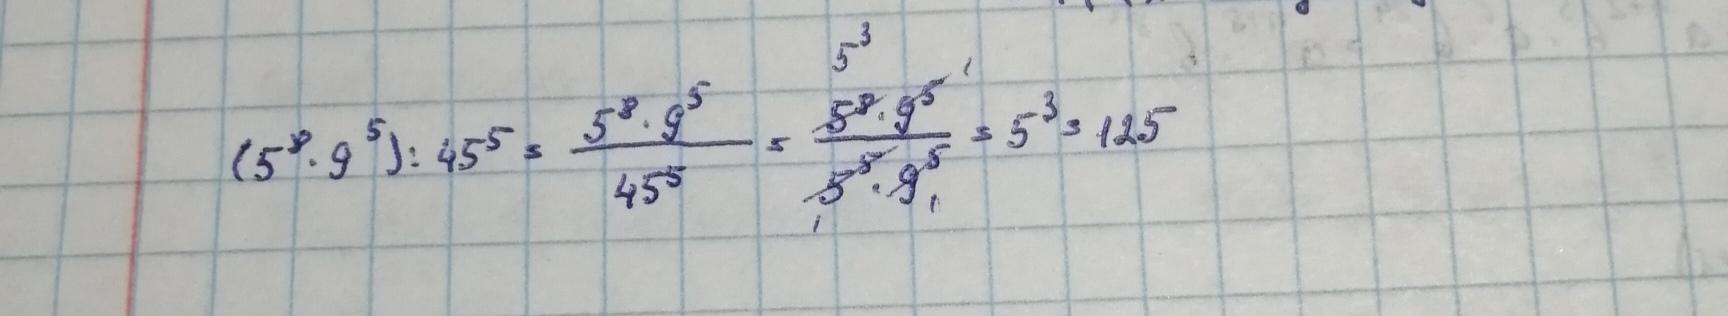 (5⁸·9⁵):45⁵ = 5⁸·9⁵/45⁵ = 5⁸·9⁵/5⁵·9⁵ = 5³ = 125